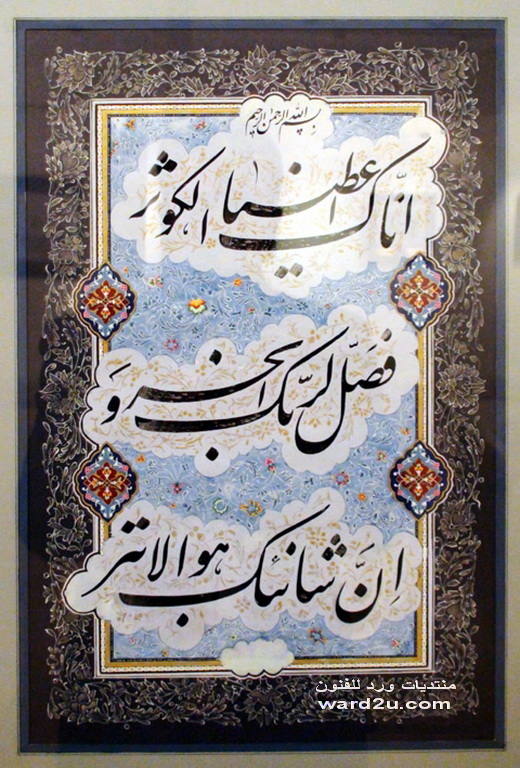 بسم الله الرحمن الرحیم
انّا اعطیناک الکوثر
فصَلّ لربّک وَ انحر
اِنَّ شانئک هو الابتر
منتديات ورد للفنون
ward2u.com